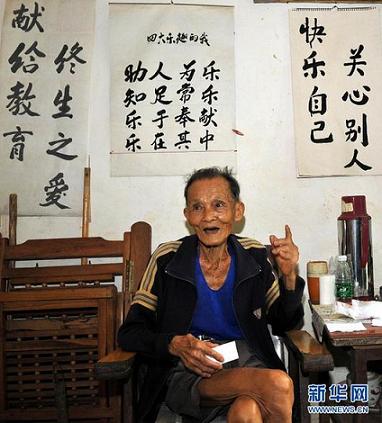 终生之爱
献给教育
四大乐趣的我
助人为乐
知足常乐
乐于奉献
乐在其中
关心别人
快乐自己
新华网
WWW.NEWS.CN